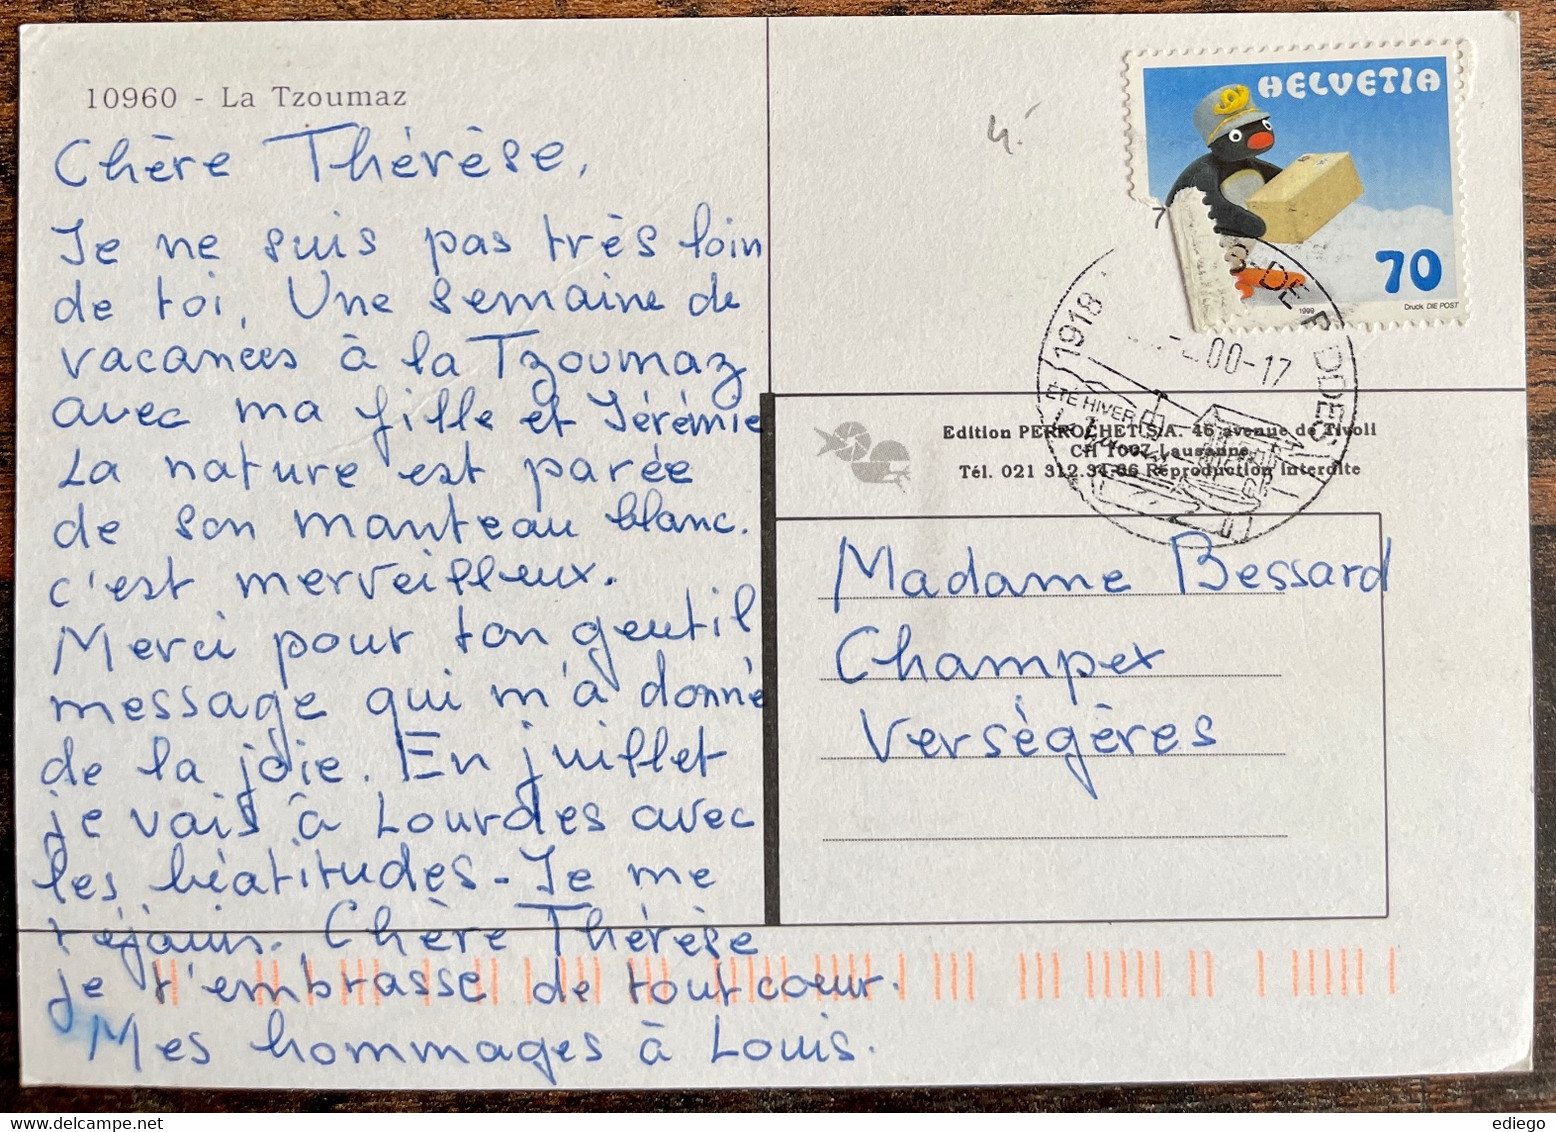 10960 - La Tzoumaz
Chère Thérèse,
Je ne suis pas très loin
de toi, Une semaine de
vacances à la Tzoumaz
avec ma fille et Jérémie
La nature est parée
de son manteau blanc.
c'est merveilleux.
Merci pour ton gentil
message qui m'à donné
de la joie. En juillet
je vais à Lourdes avec
les béatitudes - Je me
réjouis. Chère Thérèse
je t'embrasse de tout coeur.
Mes hommages à Louis.
HELVETIA
70
1999
Druck: DIE POST
1918
00-17
ÉTÉ HIVER
Edition PERROCHET S.A. 46 avenue de Tivoli
CH 1007 Lausanne
Tél. 021 312.34.86 Reproduction interdite
Madame Bessard
Champex
Versègères
ediego